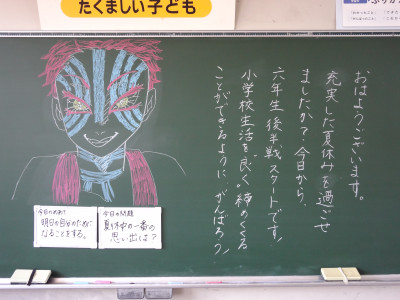 たくましい子ども
おはようございます。
充実した夏休みを過ごせ
ましたか？今日から、
六年生後半戦スタートです！
小学校生活を良く締めくくる
ことができるように、がんばろう！
今日のめあて
明日の自分のために
なることをする。
今日の問題
夏休み中の一番の
思い出は？